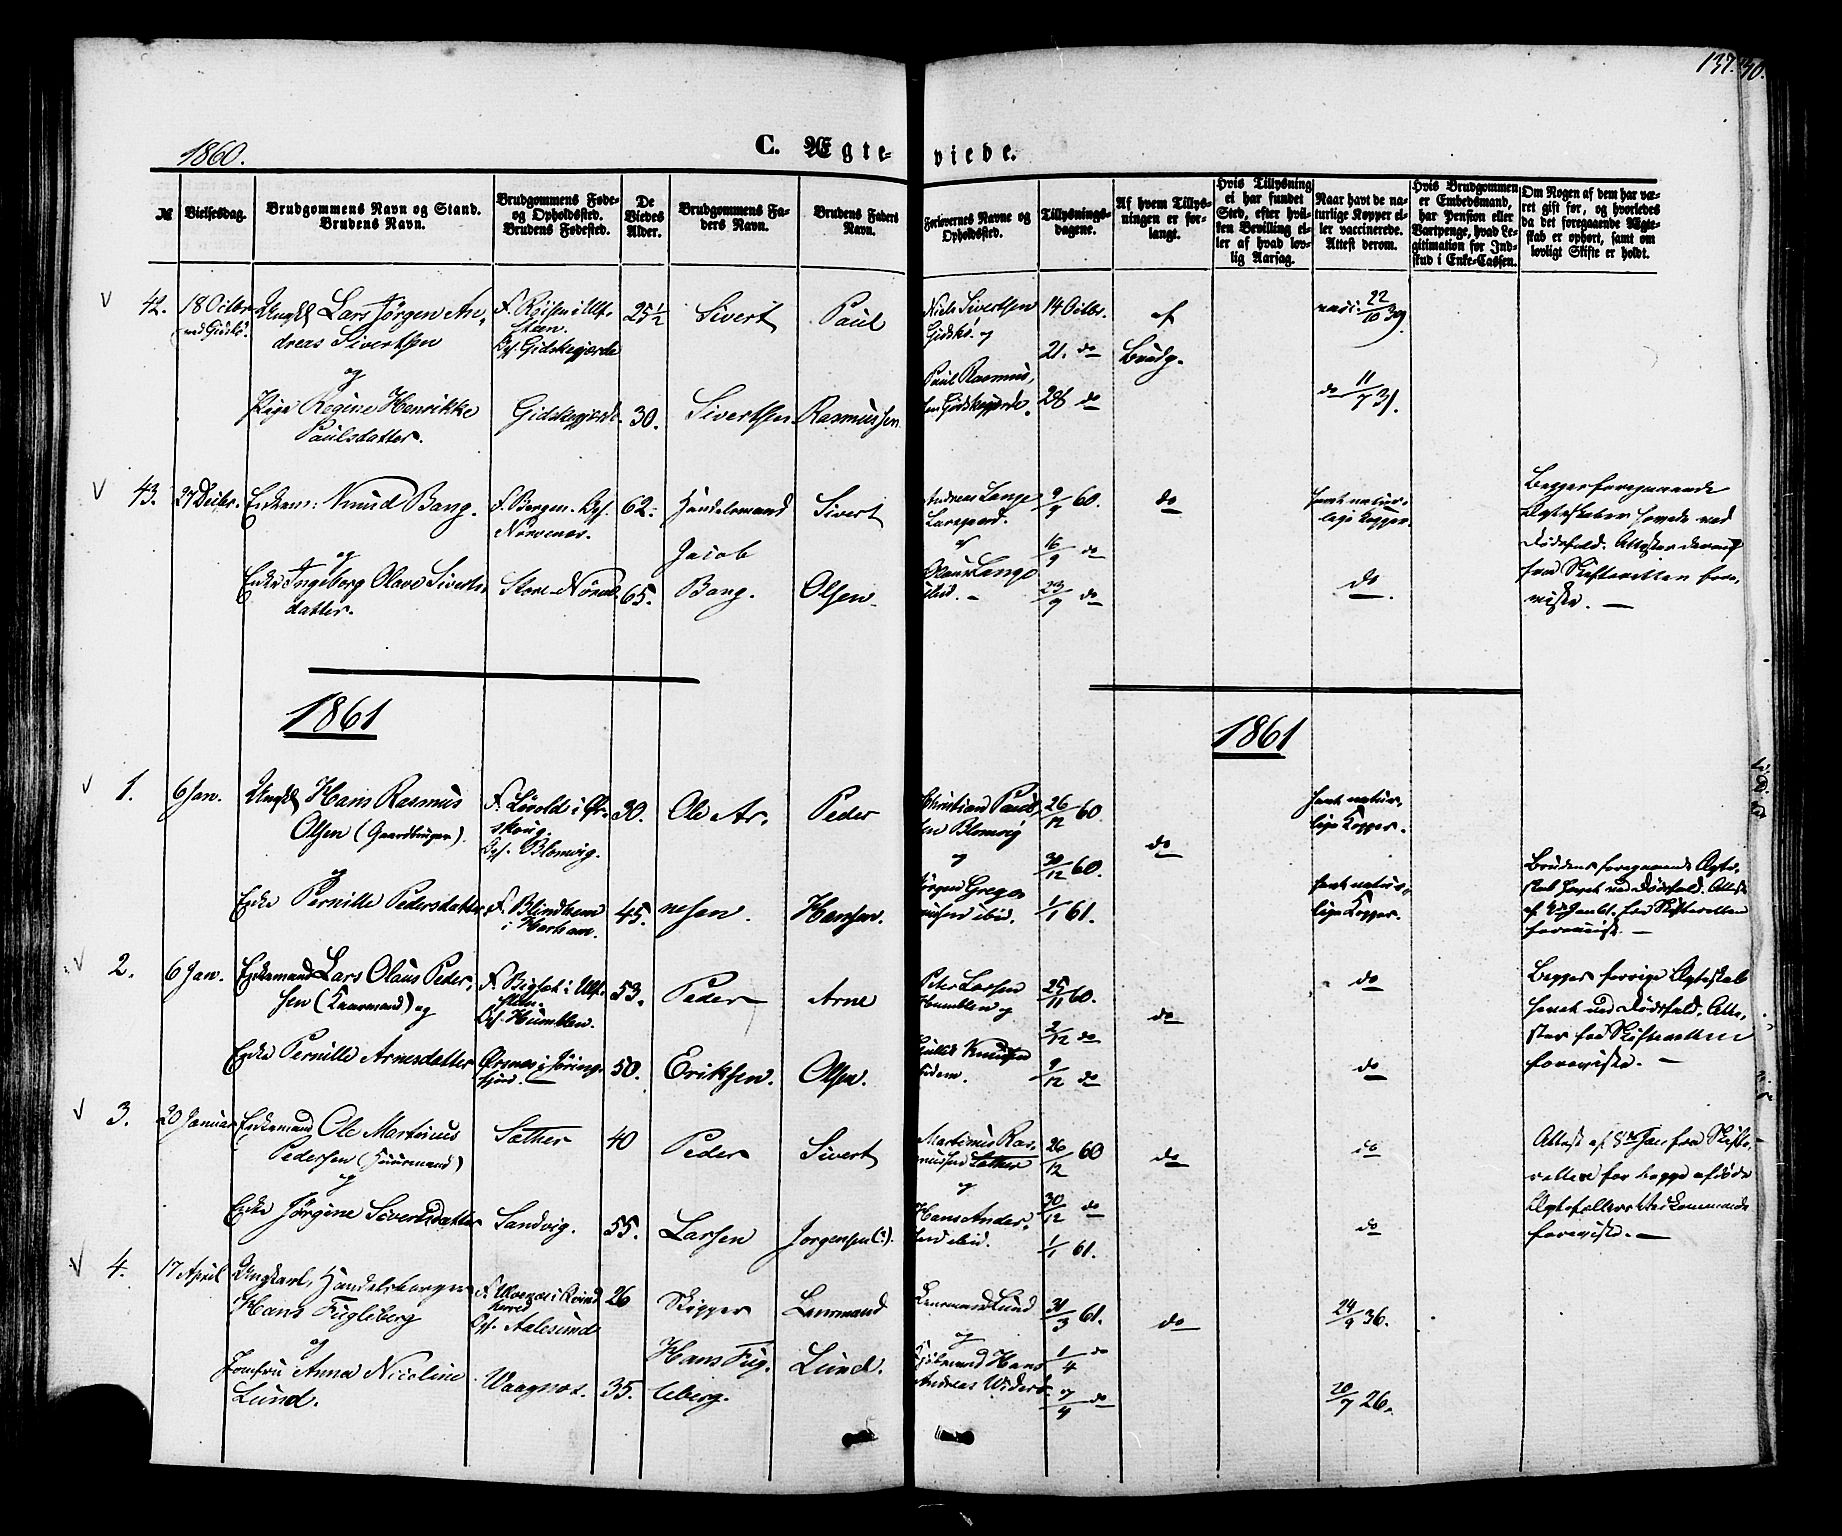 137. 
1860.
C. Ægte- viede.
№
Vielsesdag.
Brudgommens Navn og Stand.
Brudens Navn.
Brudgommens Føde-
og Opholdssted.
Brudens Fødested.
De
Viedes
Alder.
Brudgommens Fa-
ders Navn.
Brudens Faders
Navn.
Forlovernes Navne og
Opholdssted.
Tillysnings-
dagene.
Af hvem Tillys-
ningen er for-
langt.
Hvis Tillysning
ei har fundet
Sted, efter hvil-
ken Bevilling el-
ler af hvad lov-
lig Aarsag.
Naar havt de na-
turlige Kopper el-
ler vaccinerede.
Attest derom.
Hvis Brudgommen
er Embedsmand,
har Pension eller
Vartpenge, hvad Le-
gitimation for Ind-
skud i Enke-Cassen.
Om Nogen af dem har væ-
ret gift før, og hvorledes
da det foregaaende Ægte-
skab er ophørt, samt om
lovligt Skifte er holdt.
42. 18 Octbr
Ungkl Lars Jørgen An-
dreas Sivertsen
og
Pige Regine Henrikke
Paulsdatter.
Gidskegjerde
25½
30.
Sivert
Sivertsen
Paul
Rasmussen
Niels Sivertsen
Gidskø og
Paul Rasmus-
sen Gidskegjerde.
14 Octbr.
21. do
28 do
af
Brudg.
vacc: 22/10 39.
do 11/7 31.
43. 27 Decbr.
Enkem: Knud Bang.
og
Enke Ingeborg Olave Siverts-
datter.
F. Bergen. Op.
Nørvenes.
62.
65.
Handelsmand
Jacob
Bang.
Sivert
Olsen.
Andreas Lange
9/9 60.
16/9 do
23/9 do
do
havt natur-
lige Kopper.
do
Begges foregaaende
Ægteskaber hævede ved
Dødsfald. Attester derom
fra Skifteretten fore-
viste. —
1861
1861
1. 6 Jan.
Ungkl Hans Rasmus
Olsen (Gaardbruger).
og
Enke Pernille Pedersdatter
F. Løvold i Ør-
skoug.
Op. Blomvig.
F. Blindhem
i Harham.
30.
45.
Ole Ar-
nesen.
Peder
Hansen.
Christian Pauls-
sen Blomvig
og
Jørgen Grego-
riussen ibid.
26/12 60.
30/12 60.
1/1 61.
do
havt natur-
lige Kopper.
havt natur-
lige Kopper.
Brudens foregaaende Ægte-
skab hævet ved Dødsfald. Attest
fra Skifteretten
forevist. —
2. 6 Jan.
Enkemand Lars Olaus Peder-
sen (Kaarmand) og
Enke Pernille Arnesdatter
Op. Humblen.
Ørsnes i Jøring-
fjord. —
53.
50.
Peder
Eriksen.
Arne
Olsen.
Peter Larsen
Humblen og
Knudsen
ibidem.
25/11 60.
2/12 do
9/12 do
do
do
do
Begges forrige Ægteskab
hævet ved Dødsfald. Atte-
ster fra Skifteretten
foreviste. —
3. 20 Januar
Enkemand Ole Martinus
Pedersen (Huusmand)
og
Enke Jørgine Sivertsdatter
Sæther
Sandvig.
40
55.
Peder
Larsen
Sivert
Jørgensen(?).
Martinus Ras-
mussen Sæther
og
Hans Ander-
sen ibid.
26/12 60
30/12 do
1/1 61.
do
do
do
Attest af 8de Jan. fra Skifte-
retten for begge afdøde
Ægtefællers Vedkommende
foreviste. —
4. 17 April
Ungkarl, Handelsborger
Hans Fugleberg
og
Jomfru Anna Nicoline
Lund.
Op. Aalesund
Vaagnes.
26
35.
Skipper
Hans Fug-
leberg.
Lensmand
Lund.
Lensmand Lund
og
Hans
Andreas
31/3 61.
1/4 do
7/4 do
do
24/9 36.
20/7 26.